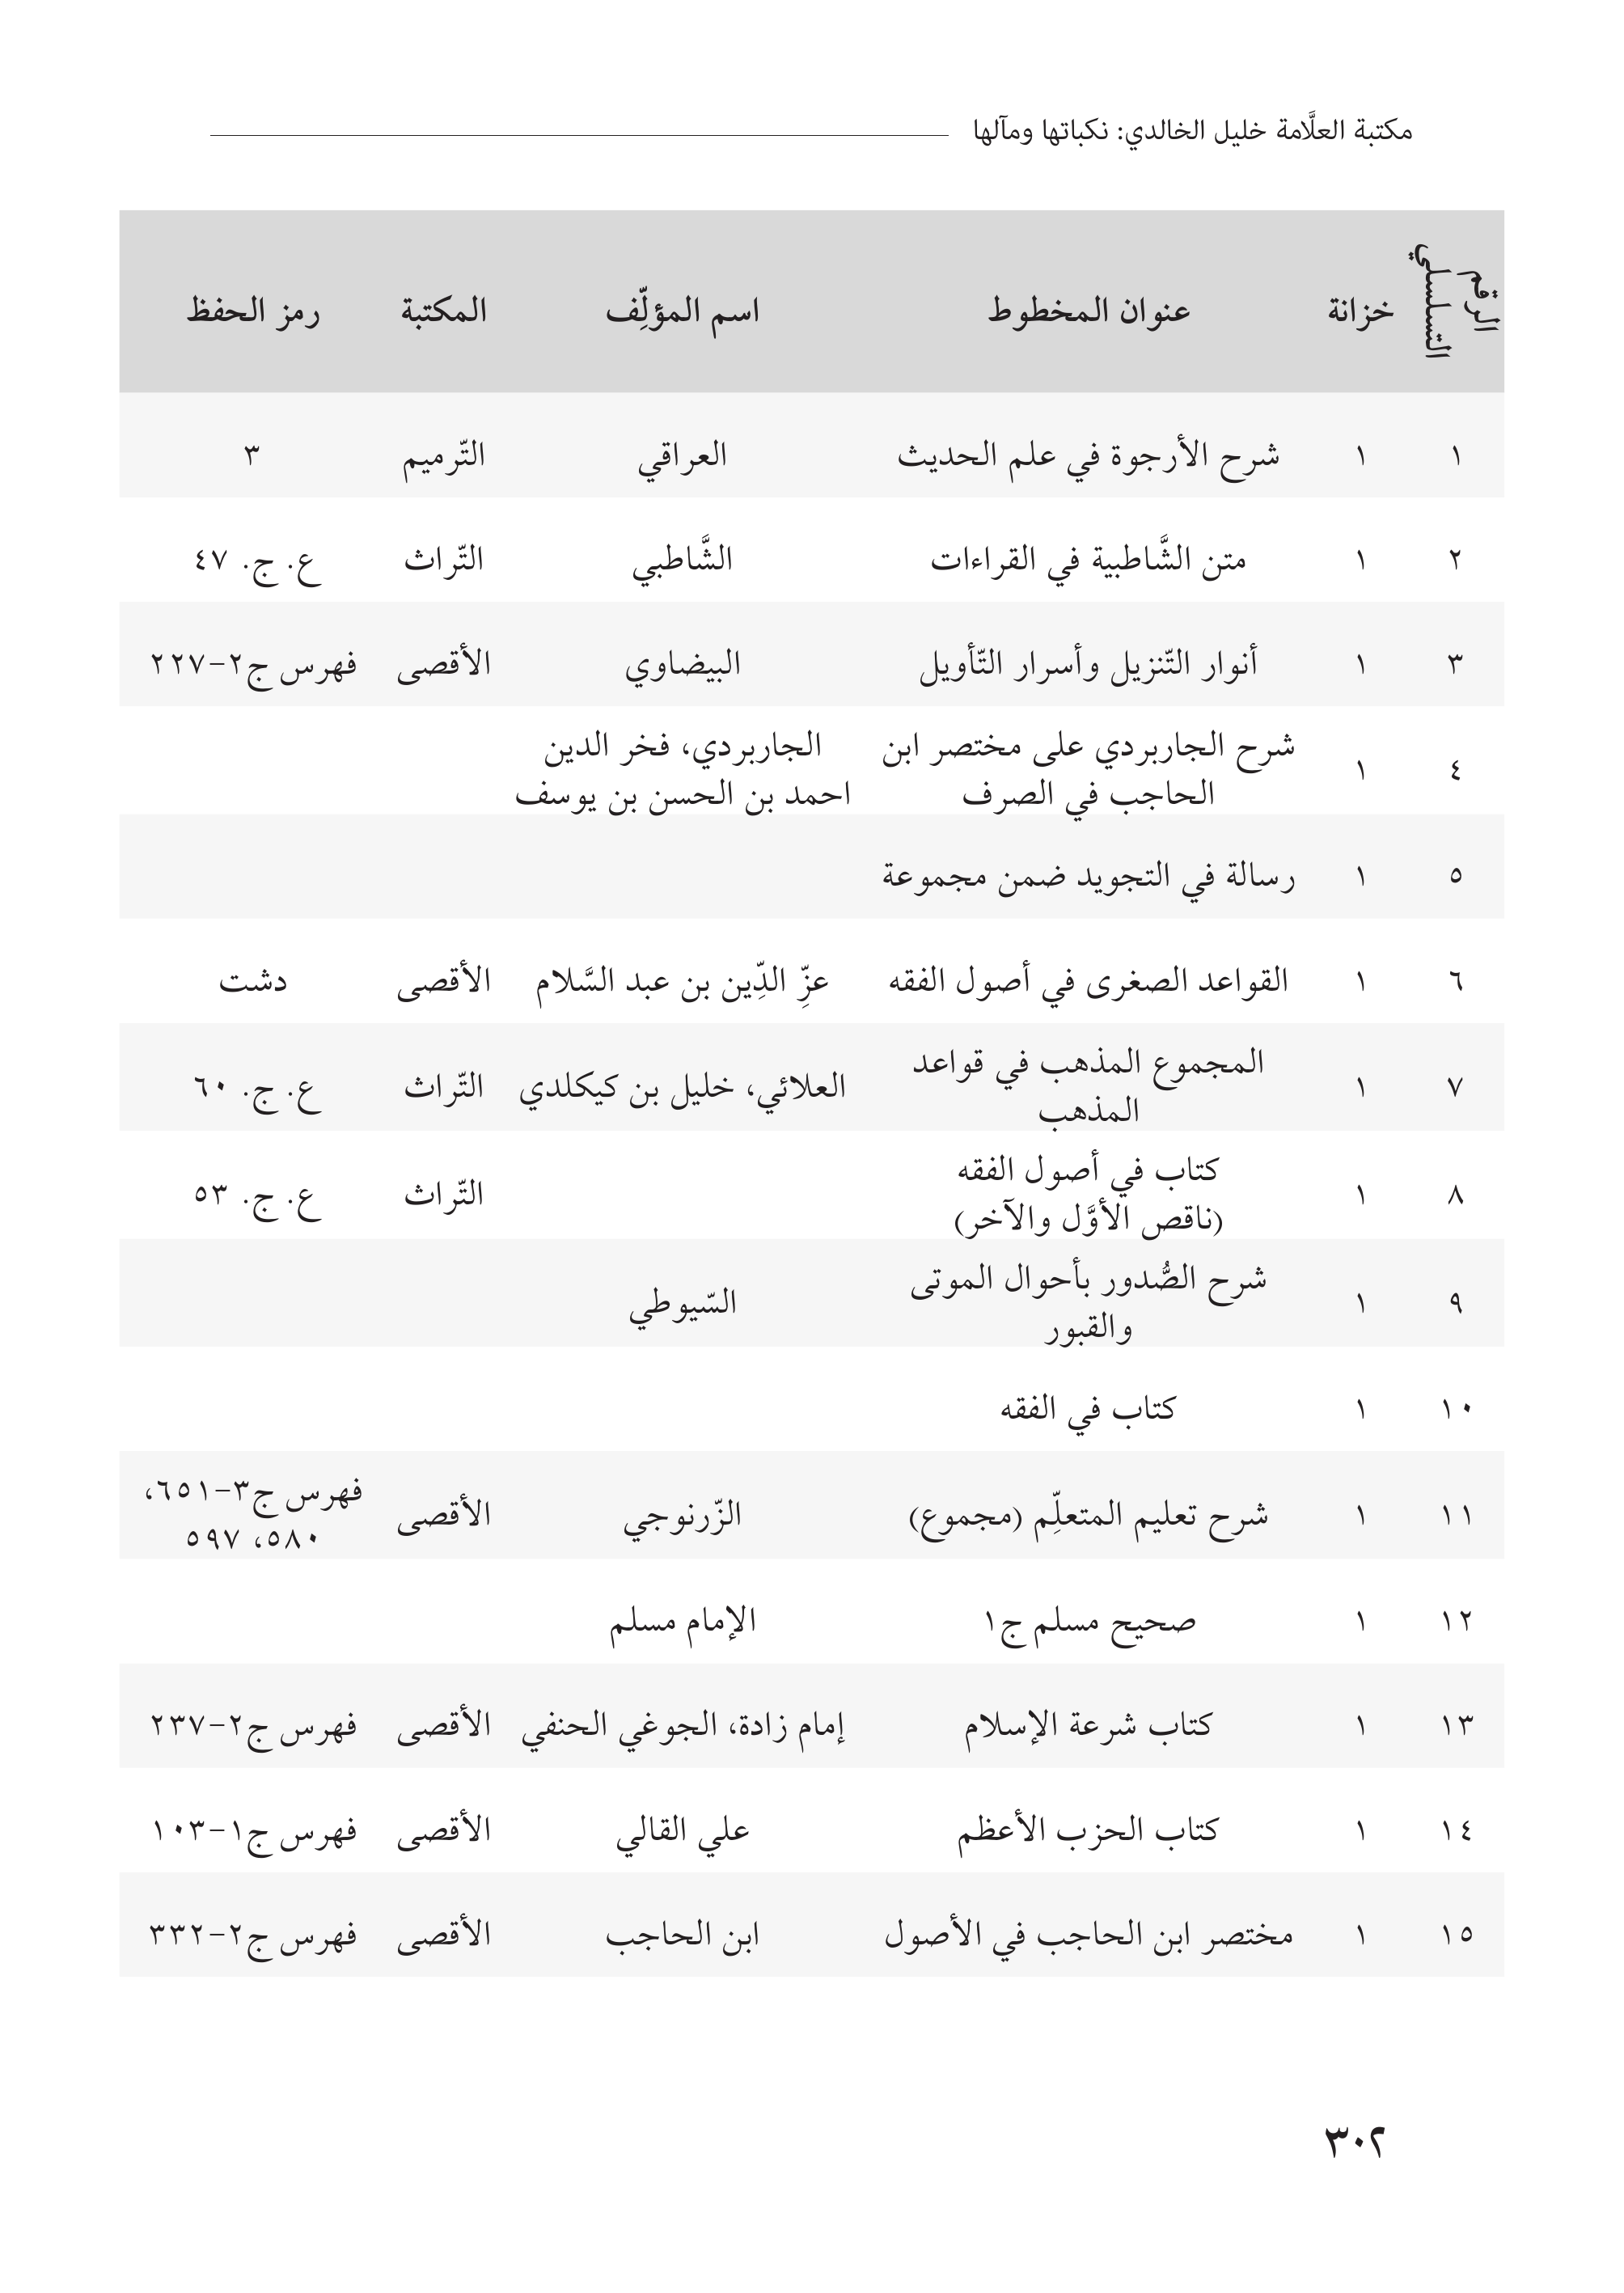 مكتبة العلَّامة خليل الخالدي: نكباتها ومآلها
الرقم التسلسلي خزانة عنوان المخطوط اسم المؤلِّف المكتبة رمز الحفظ
١ ١ شرح الأرجوة في علم الحديث العراقي التّرميم ٣
٢ ١ متن الشَّاطبية في القراءات الشَّاطبي التّراث ع. ج. ٤٧
٣ ١ أنوار التّنزيل وأسرار التّأويل البيضاوي الأقصى فهرس ج٢-٢٢٧
٤ ١ شرح الجاربردي على مختصر ابن
الحاجب في الصرف
الجاربردي، فخر الدين
احمد بن الحسن بن يوسف
٥ ١ رسالة في التجويد ضمن مجموعة
٦ ١ القواعد الصغرى في أصول الفقه عزِّ الدِّين بن عبد السَّلام الأقصى دشت
٧ ١ المجموع المذهب في قواعد
المذهب
العلائي، خليل بن كيكلدي التّراث ع. ج. ٦٠
٨ ١ كتاب في أصول الفقه
(ناقص الأوَّل والآخر)
التّراث ع. ج. ٥٣
٩ ١ شرح الصُّدور بأحوال الموتى
والقبور
السّيوطي
١٠ ١ كتاب في الفقه
١١ ١ شرح تعليم المتعلِّم (مجموع) الزّرنوجي الأقصى فهرس ج٣-٦٥١،
٥٨٠، ٥٩٧
١٢ ١ صحيح مسلم ج١ الإمام مسلم
١٣ ١ كتاب شرعة الإسلام إمام زادة، الجوغي الحنفي الأقصى فهرس ج٢-٢٣٧
١٤ ١ كتاب الحزب الأعظم علي القالي الأقصى فهرس ج١-١٠٣
١٥ ١ مختصر ابن الحاجب في الأصول ابن الحاجب الأقصى فهرس ج٢-٣٣٢
٣٠٢